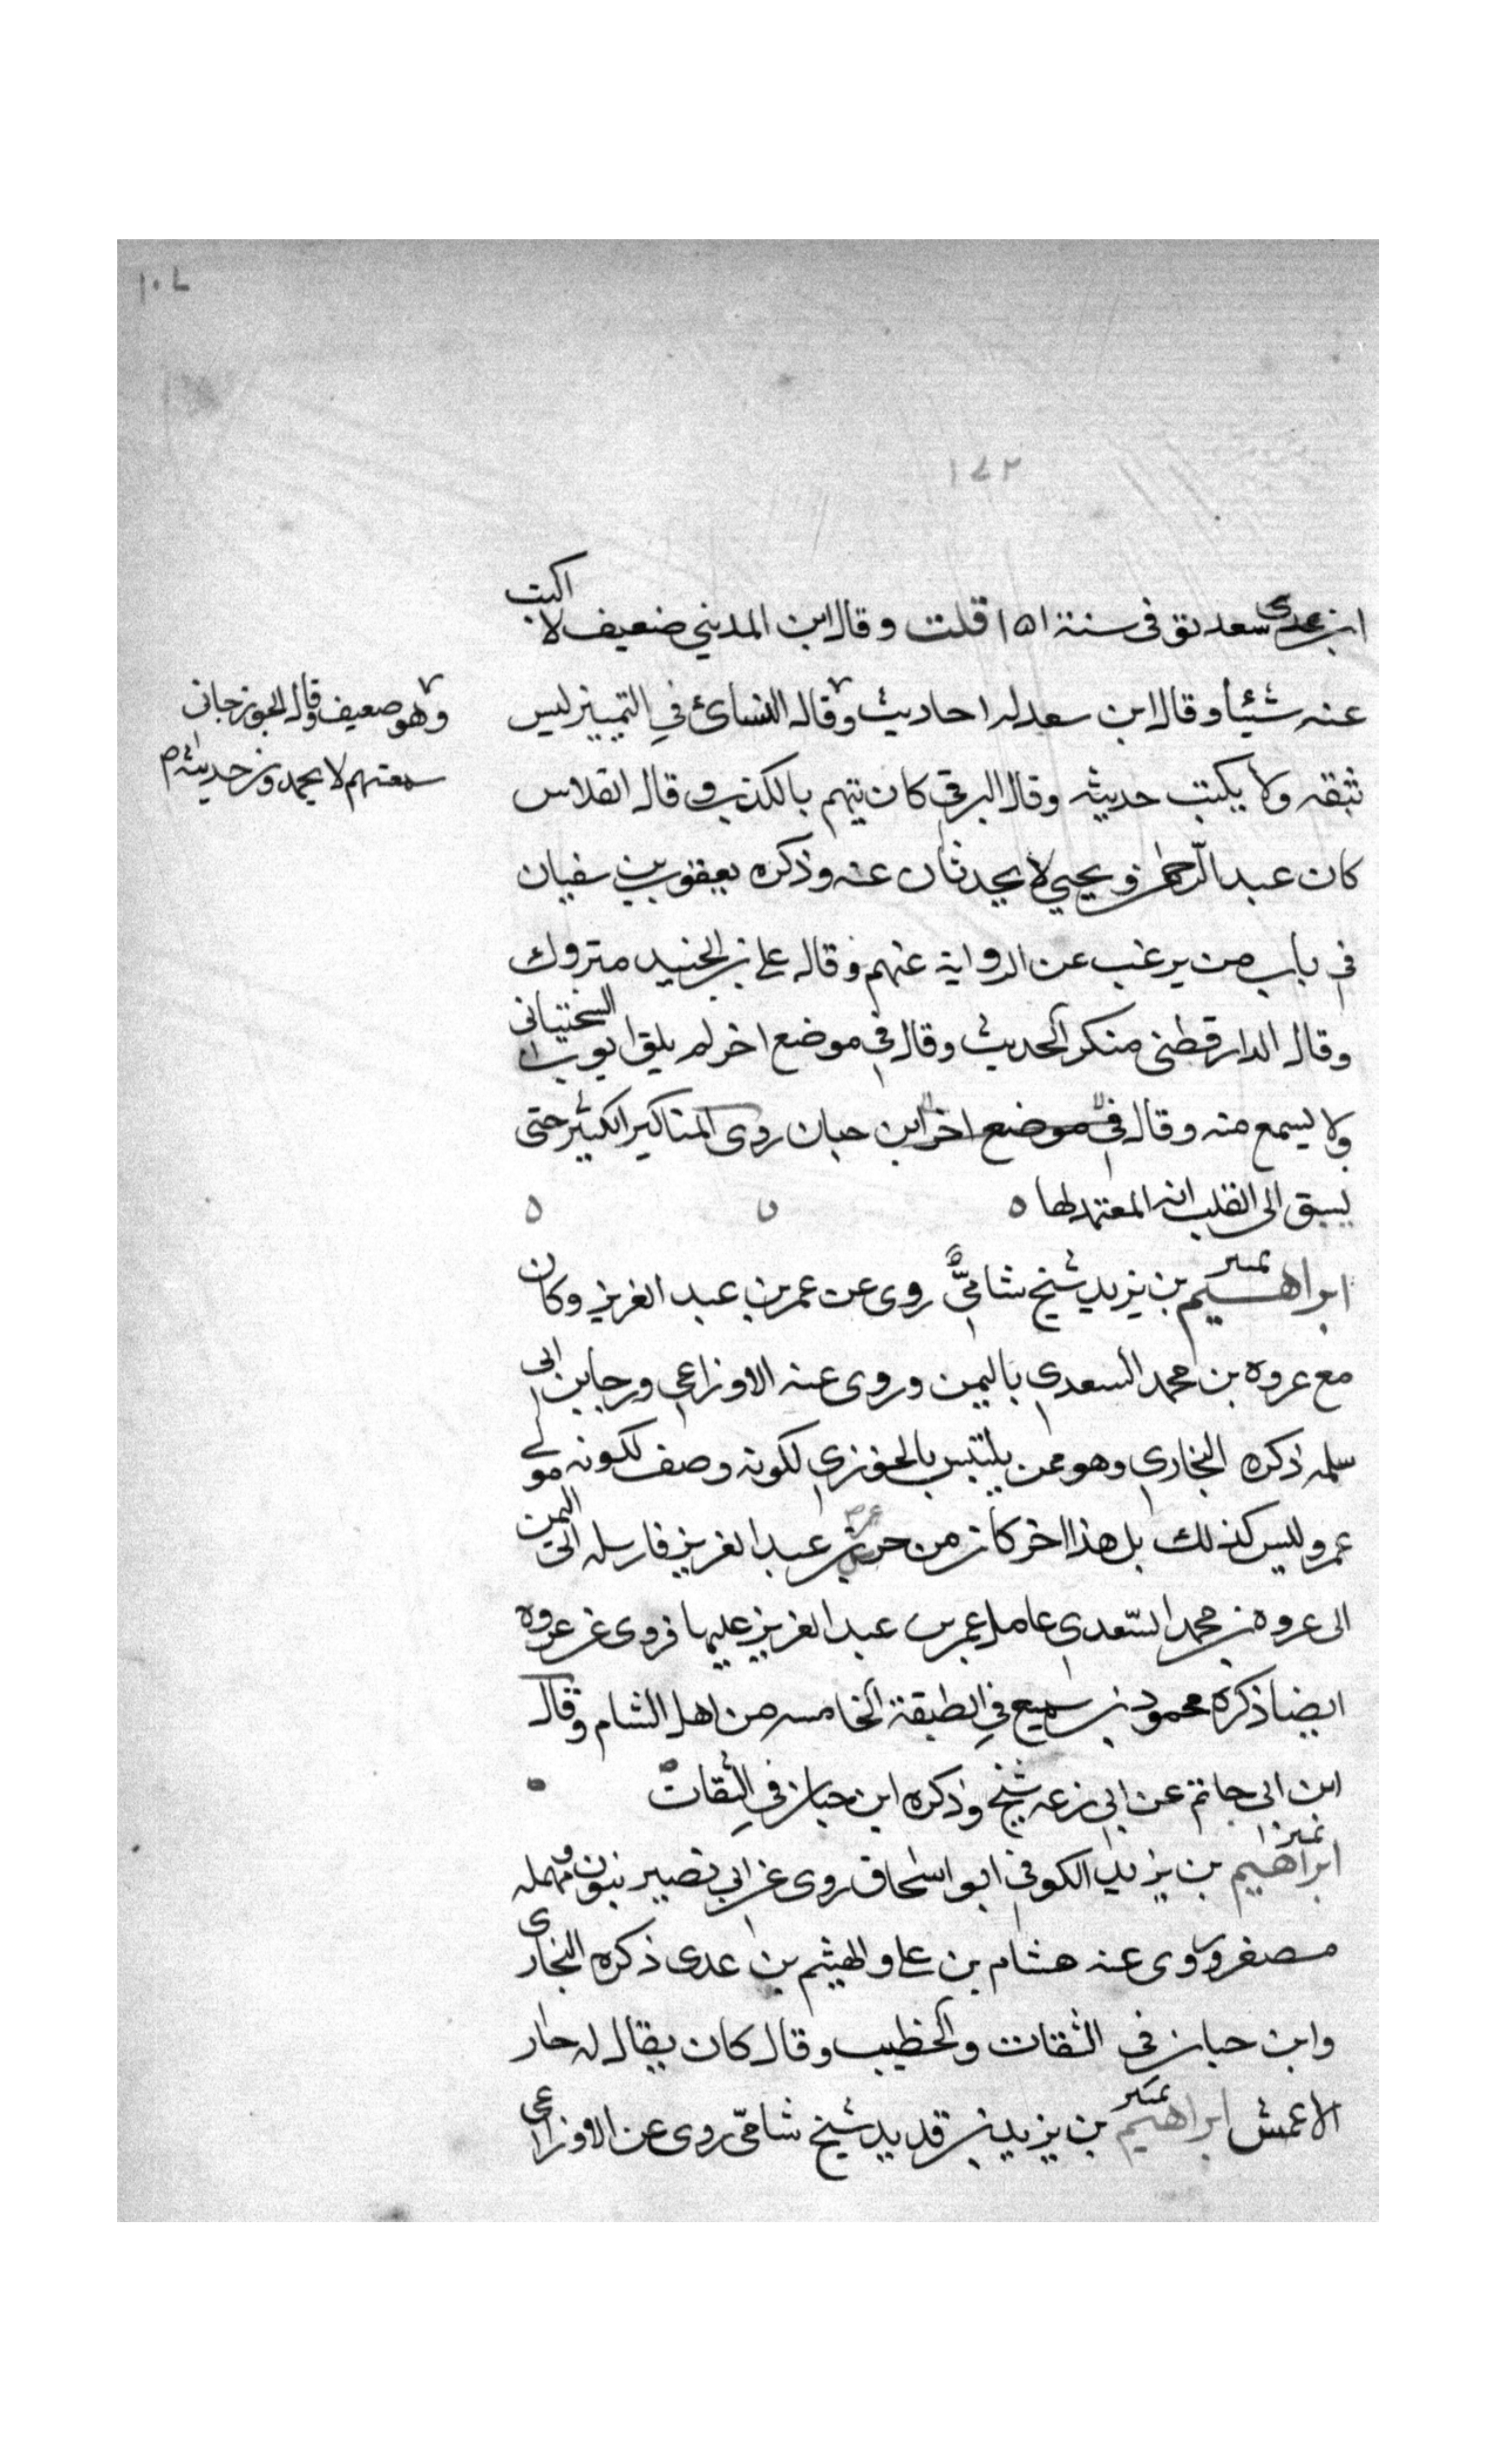 ١٠٧
١٧٢
ابن سعد توفى سنة ١٥١ قلت وقال ابن المديني ضعيف لا اكتب
عنه شيئا وقال ابن سعد له احاديث وقال النسائ في التمييز ليس
وهو ضعيف وقال الجوزجانى
سمعتهم لا يحمدون حديثه
بثقه ولا يكتب حديثه وقال البرقي كان يتهم بالكذب وقال الفلاس
كان عبد الرحمن ويحيي لا يحدثان عنه وذكره يعقوب بن سفيان
في باب من يرغب عن الرواية عنهم وقال علي بن الجنيد متروك
وقال الدارقطنى منكر الحديث وقال في موضع اخر لم يلق ايوب السختيانى
ولا يسمع منه وقال في موضع اخر ابن حبان روى المناكير الكثير حتى
يسبق الى القلب انه المعتمد لها ه
ابراهيم بن يزيد شيخ شاميٌّ روى عن عمر بن عبد العزيز وكان
مع عروه بن محمد السعدي باليمن وروى عنه الاوزاعي ورجا بن ابى
سلمه ذكره البخاري وهو ممن يلتبس بالخوزي لكونه وصف لكونه مولى
عمر وليس كذلك بل هذا اخر كان من حرس عمر بن عبد العزيز فارسله الى اليمن
الى عروه بن محمد السّعدي عامل عمر بن عبد العزيز عليها فروى عن عروه
ايضا ذكره محمود بن سميع في الطبقة الخامسه من اهل الشام وقال
ابن ابى حاتم عن ابي زرعه شيخ وذكره ابن حبان في الثقات
ابراهيم بن يزيد الكوفي ابو اسحاق روى عن ابي نصير بنون ومهمله
مصغر وروى عنه هشام بن علي والهيثم بن عدى ذكره البخارى
وابن حبان في الثقات والخطيب وقال كان يقال له جار
الاعمش ابراهيم بن يزيد بن قديد شيخ شامّى روى عن الاوزاعى